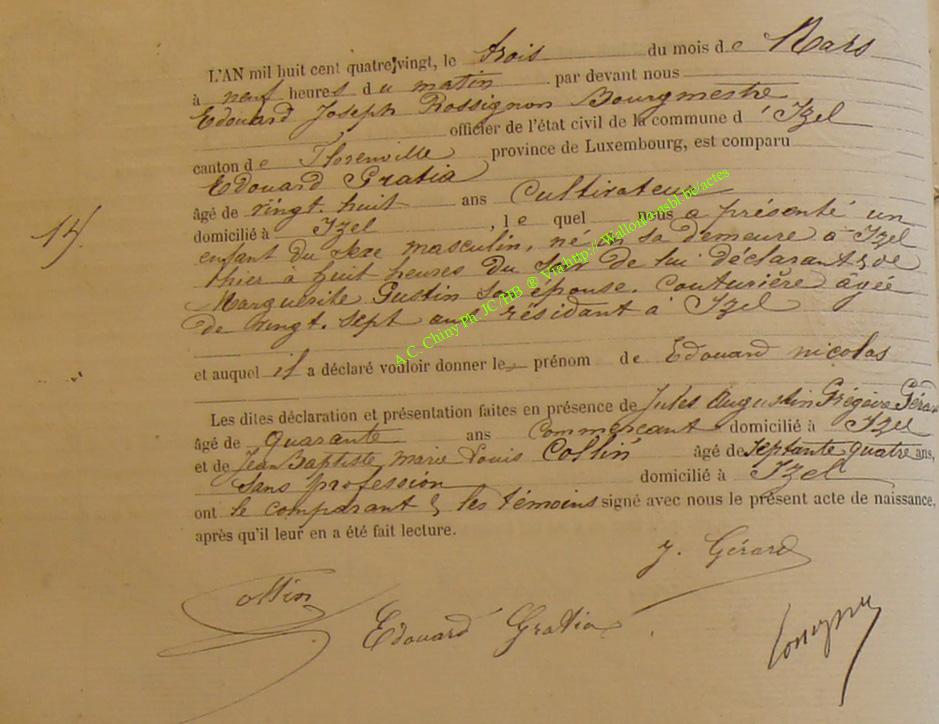 L'AN mil huit cent quatre vingt, le trois du mois de Mars
à neuf heures du matin par devant nous
Edouard Joseph Rossignon Bourgmestre
officier de l'état civil de la commune d' Izel
canton de Florenville province de Luxembourg, est comparu
Edouard Gratia
âgé de vingt. huit ans Cultivateur
domicilié à Izel, le quel nous a présenté un
enfant du sexe masculin, né en sa demeure à Izel
hier à huit heures du soir de lui déclarant & de
Marguerite Gustin son épouse. Couturière âgée
de vingt. sept ans résidant à Izel
15/
et auquel il a déclaré vouloir donner le prénom de Edouard nicolas
Les dites déclaration et présentation faites en présence de Jules Augustin Grégoire Gérard
âgé de quarante ans Commerçant domicilié à Izel
et de Jean Baptiste marie Louis Collin âgé de septante quatre ans,
sans profession domicilié à Izel
ont le comparant & les témoins signé avec nous le présent acte de naissance,
après qu'il leur en a été fait lecture.
J. Gérard
Collin
Edouard Gratia
A.C. Chiny Ph. JC/HB ® Via http://Wallonia-asbl-be/actes